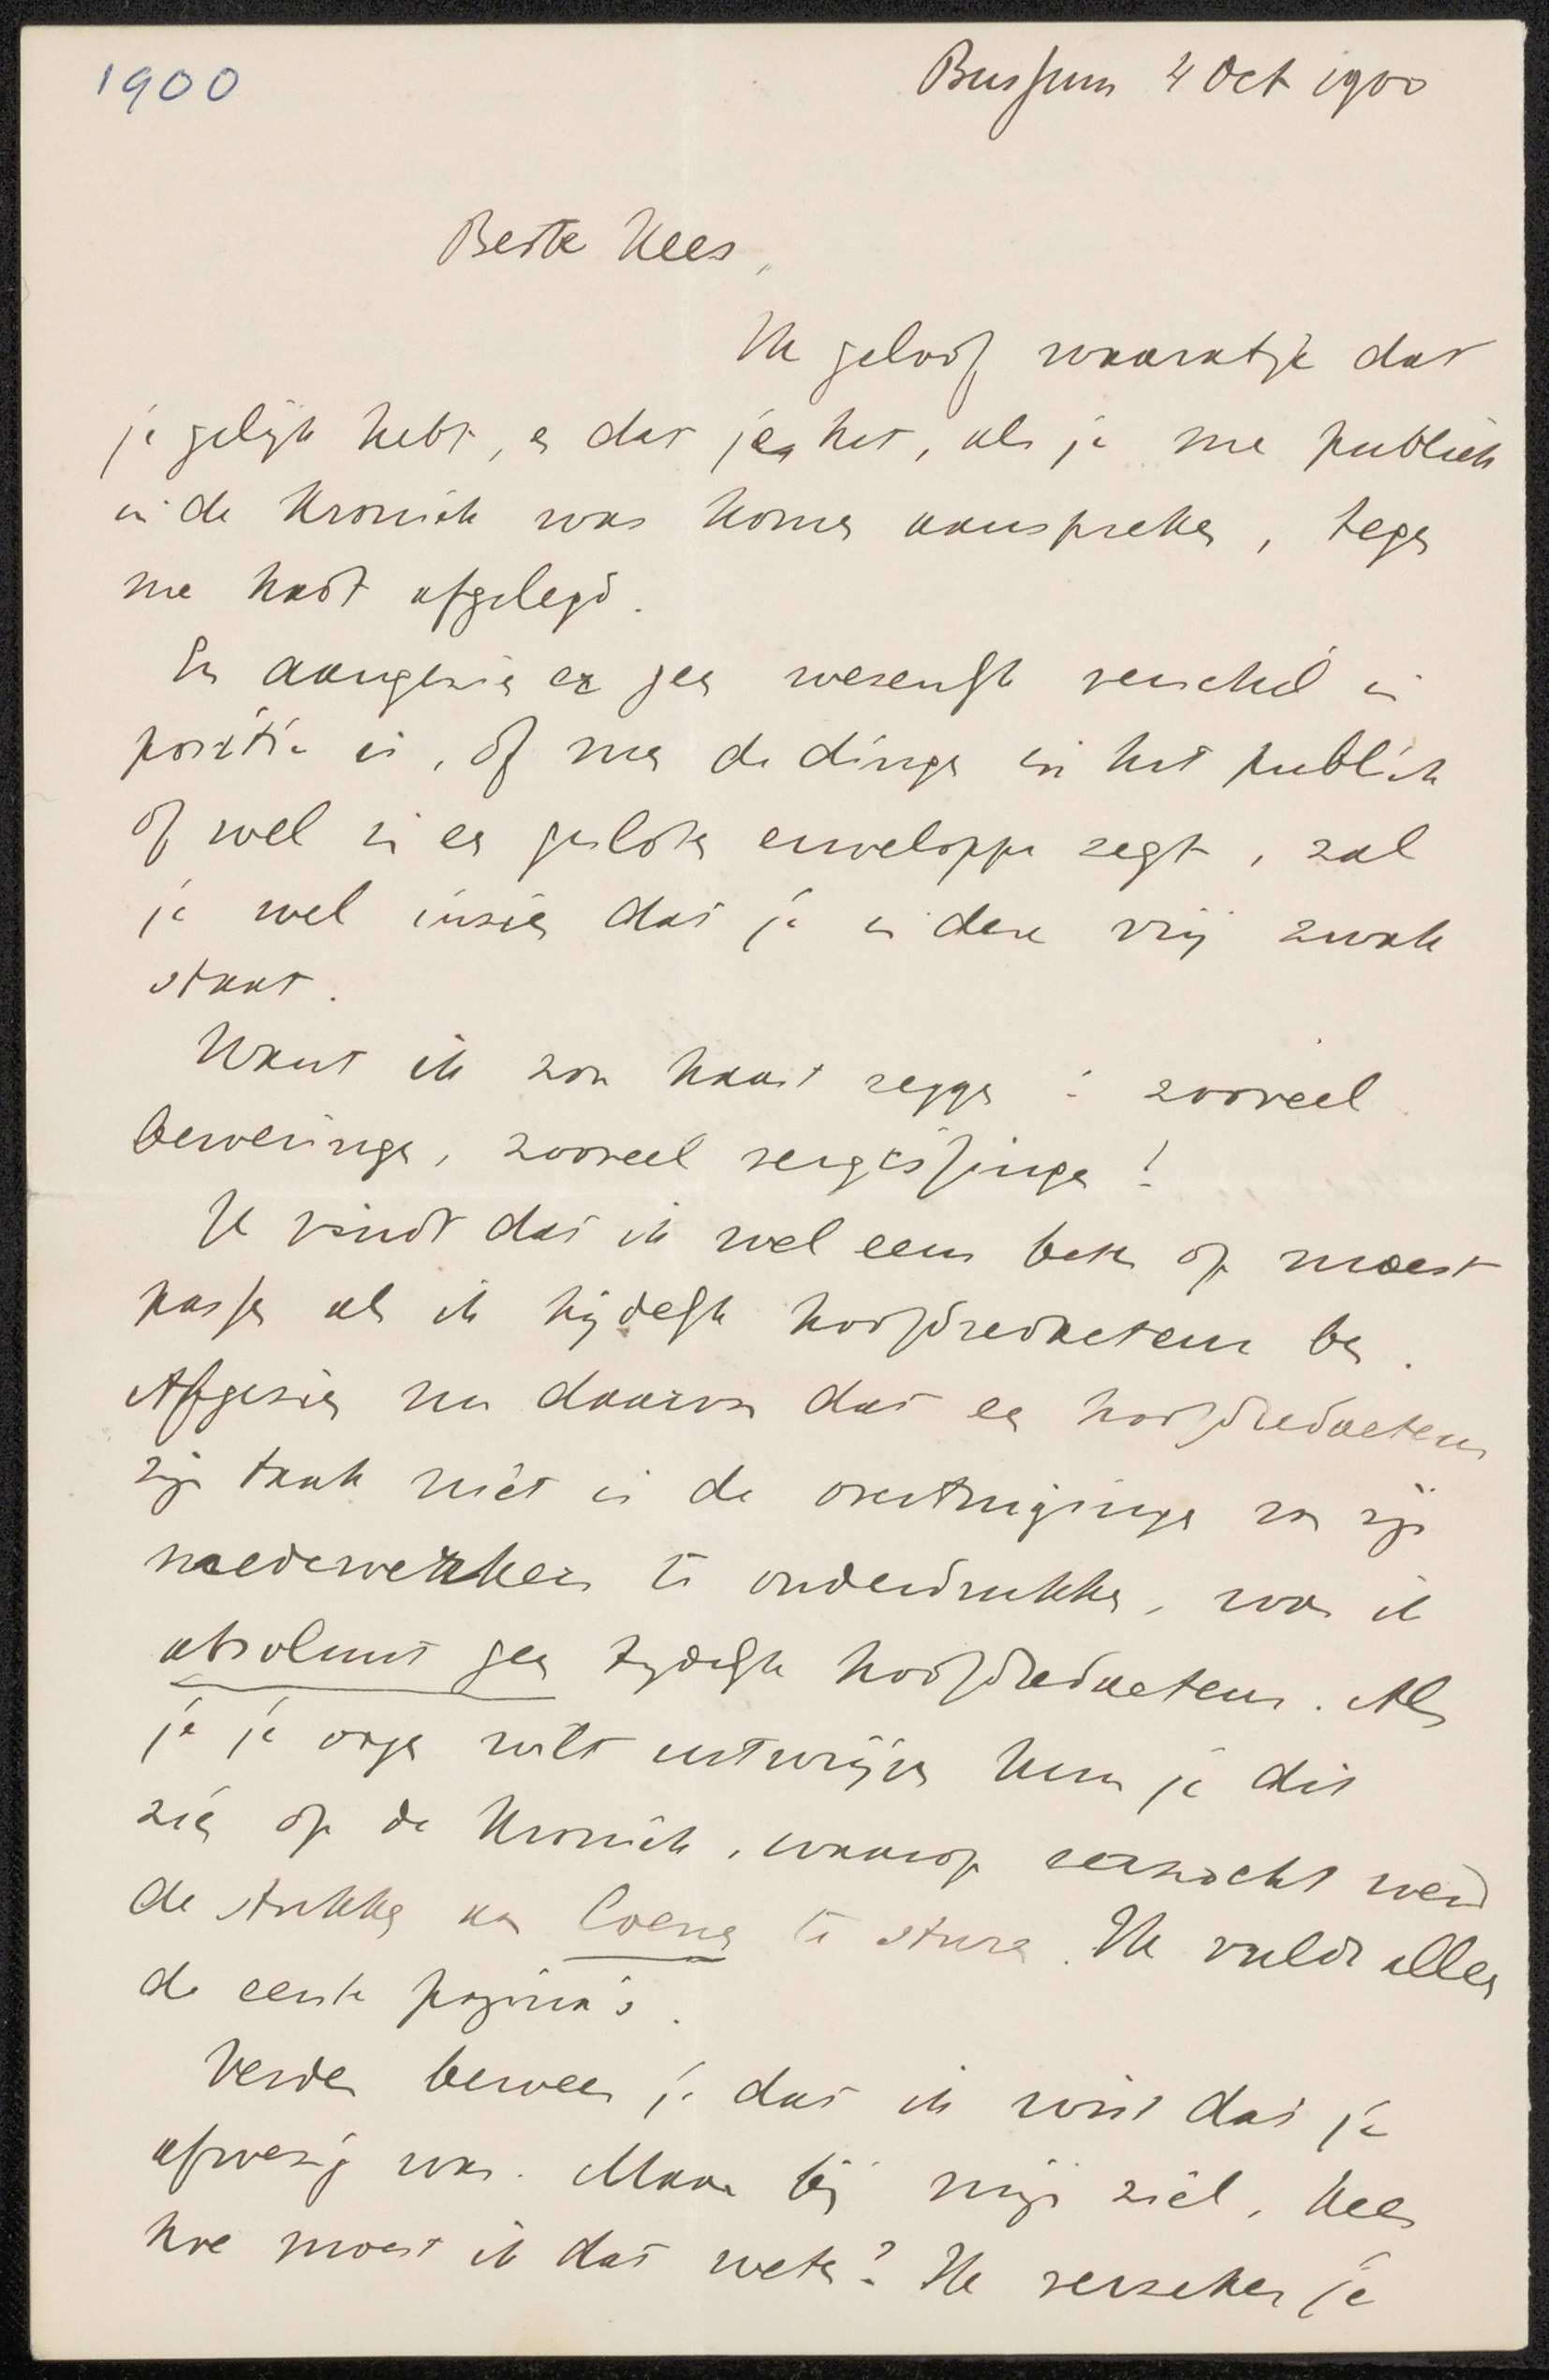 1900
Bussum 4 Oct 1900
Beste Kees,
Ik geloof waaratje dat
je gelijk hebt, en dat je het, als je me publiek
in de Kroniek was komen aanspreken, tegen
me hadt afgelegd.
En aangezien er geen wezenlijk verschil in
positie is, of men de dingen in het publiek
of wel in een gesloten enveloppe zegt, zal
je wel inzien dat je in deze vrij zwak
staat.
Want ik zou haast zeggen: zooveel
beweringen, zooveel vergissingen!
Je vindt dat ik wel eens beter op moest
passen als ik tijdelijk hoofdredacteur ben.
Afgezien nu daarvan dat een hoofdredacteur
zijn taak niet is de overtuigingen van zijn
medewerkers te onderdrukken, was ik
absoluut geen tydelijk hoofdredacteur. Als
je je oogen wilt uitwrijven kun je dit
zien op de Kroniek, waarop verzocht werd
de stukken aan Coenen te sturen. Ik vulde alleen
de eerste pagina's.
Verder beweer je dat ik wist dat je
afwezig was. Maar bij mijn ziel, Kees
hoe moest ik dat weten? Ik verzeker je